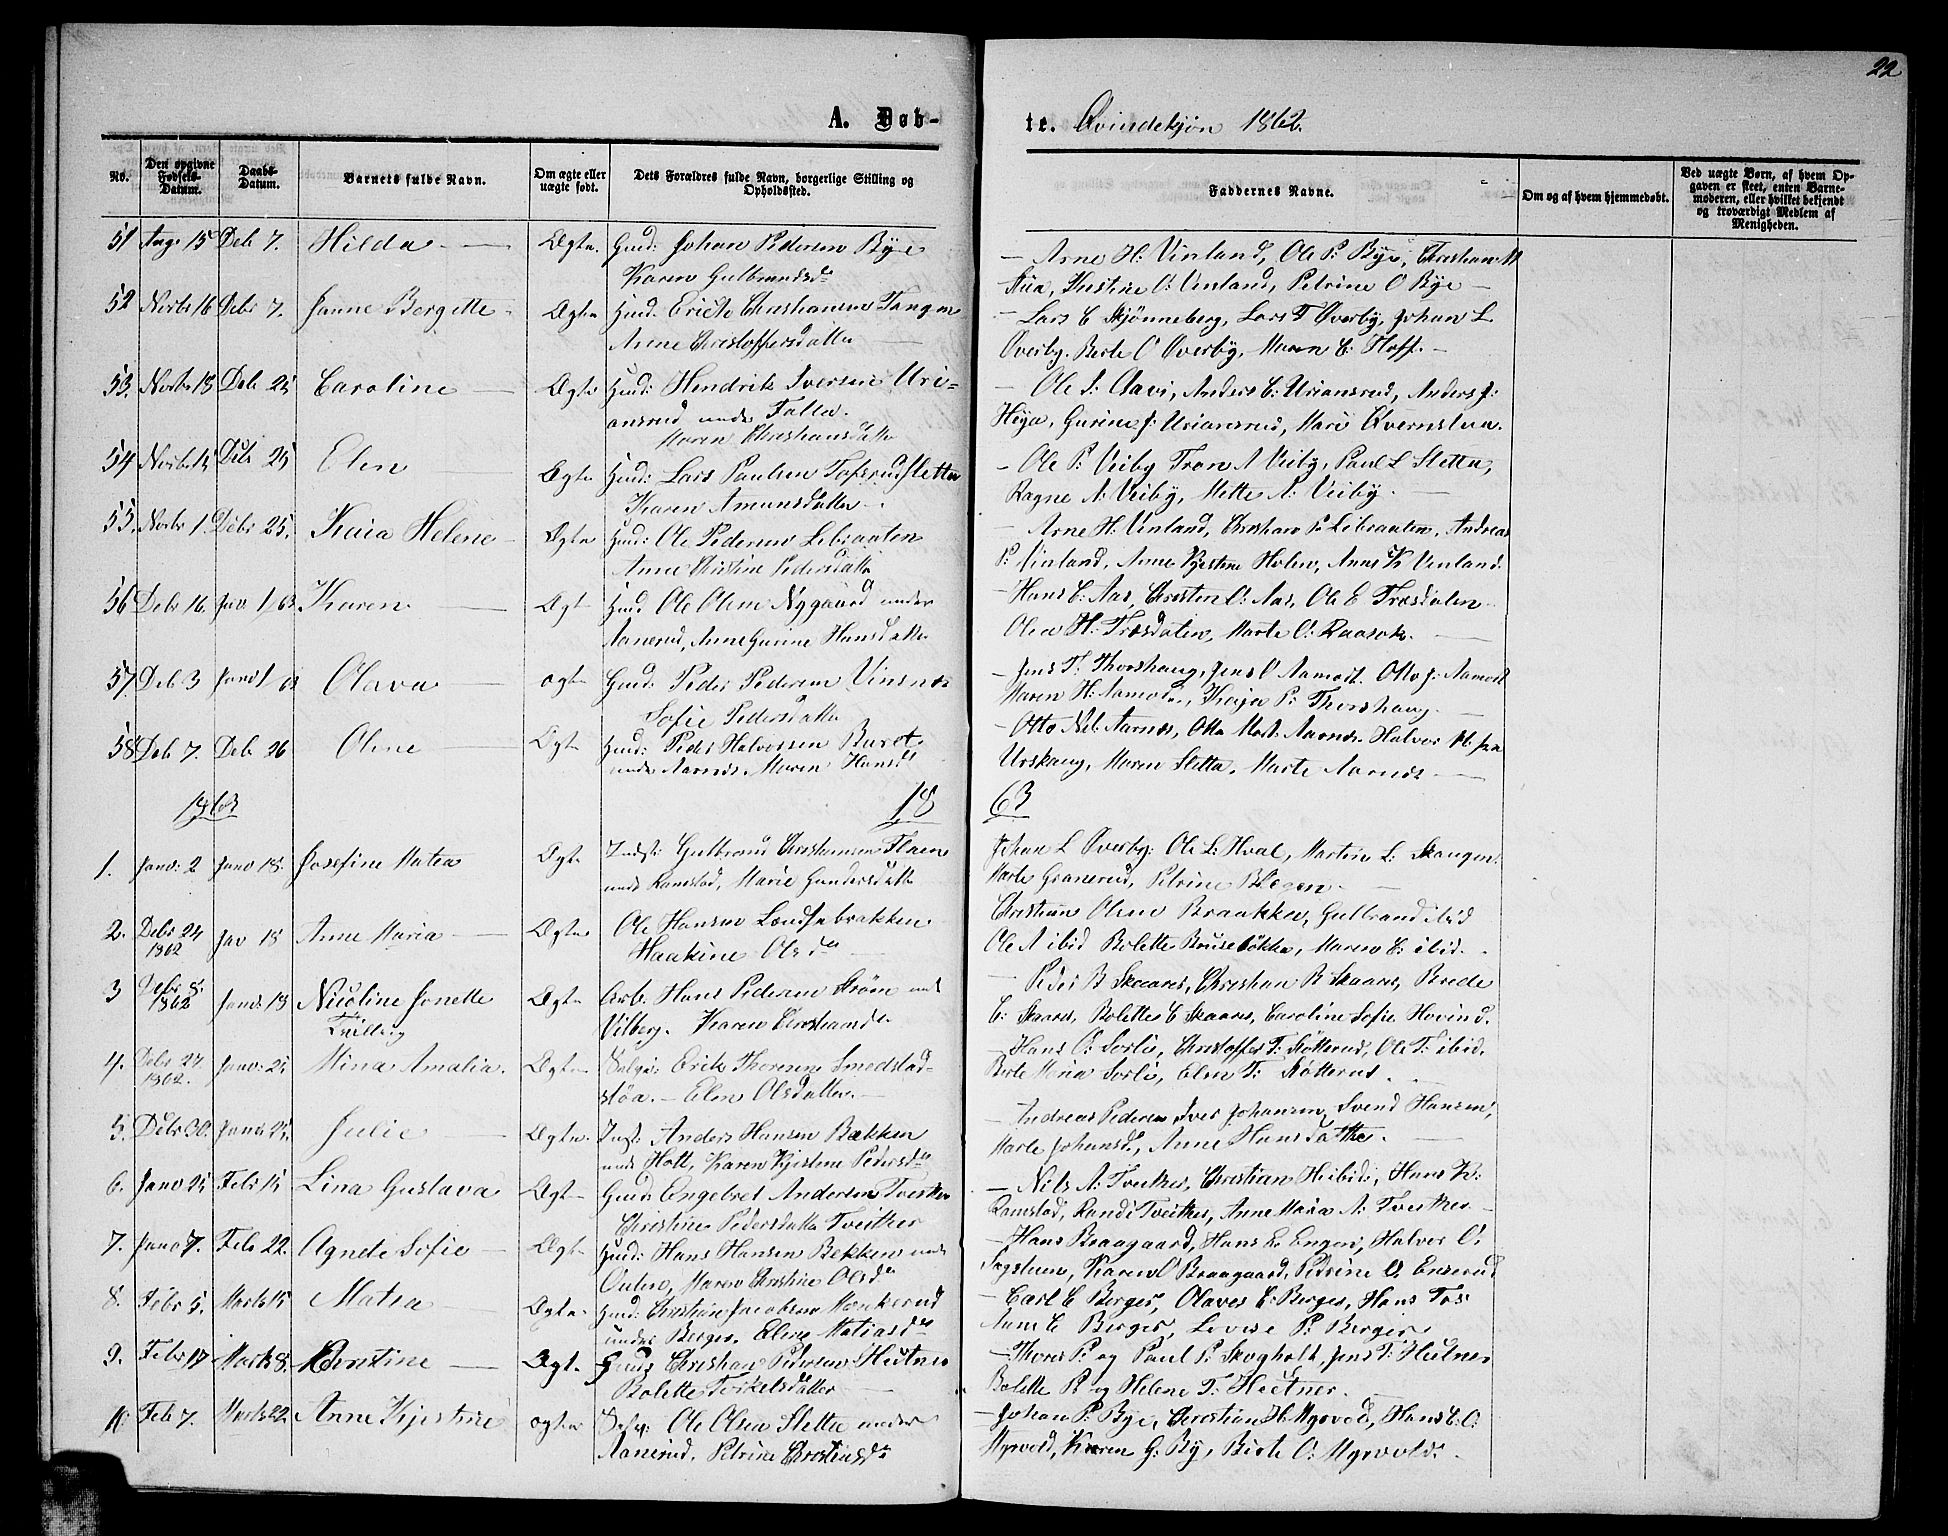 22
A. Døb-
te. Qvindekjøn 1862.
No.
Den opgivne Fødsels-Datum.
Daabs-Datum.
Barnets fulde Navn.
Om ægte eller uægte født.
Dets Forældres fulde Navn, borgerlige Stilling og Opholdssted.
Faddernes Navne.
Om og af hvem hjemmedøbt.
Ved uægte Børn, af hvem Op-
gaven er skeet, enten Barne-
moderen, eller hvilket bekjendt
og troværdigt Medlem af
Menigheden.
51 Aug. 15 Deb 7. Hilda — Ægte Huusd: Johan Pedersen Bye
Karen Gulbrandsd.
— Arne H: Vinland, Ole P: Bye, Christian
Kristine O: Vinland, Petrine O Bye —
52 Novbr 16 Debr 7. Janne Borgette Ægte Huusd: Erick Christiansen Tangen
Anne Christoffersdatter
— Lars C Skjønneberg, Lars T Øverby, Johan L.
Øverby. Berte O Øverby, Maren C: Hoff. —
53. Novbr 18 Deb 25 Caroline — Ægte Huusd: Hendrik Iversen Uri-
ansrud under Falla.
Maren Christiansdatter
— Ole J: Clavi, Anders C: Uriansrud, Anders J:
Heya, Gurine J: Uriansrud, Mari Qvernstuen.
54 Novbr 15 Debr 25 Elen Ægte Huusd: Lars Paulsen Tofsrudsletta
Karen Amunsdatter
— Ole P: Veiby Tron A Veiby, Paul L Sletta,
Ragne A: Veiby, Mette A: Veiby. —
55. Novbr 1. Debr 25. Kaia Helene Ægte Huusd: Ole Pedersen Lebraaten
Anne Christine Pedersdatter
— Arne H: Vinland, Christian P: Lebraaten, Andreas
P: Vinland, Anne Kjestine Holen, Anne K Vinland
56 Debr 16. Jan 1, 63 Karen — Ægte Huusd Ole Olsen Nygaard under
Aanerud, Anne Gurine Hansdatter
— Hans C: Aas, Christen O: Aas, Ole E Træsdalen
Olea H: Træsdalen, Marte O: Raasok.
57 Deb 3 Janv 1 63 Olava — ægte Huusd: Peder Pedersen Vinsnes
Sofie Pedersdatter
— Jens T. Thorshaug, Jens O Aamodt. Otto J: Aamodt
Maren H: Aamodt, Kaja P: Thorshaug. —
58 Deb 7. Deb 26 Oline — Ægte Huusd: Peder Halvorsen Buret
under Aarnes. Maren Hansd
— Otto Nil: Aarnes, Otto Mort: Aarnes. Halvor H: fra
Urskaug, Maren Sletta, Marte Aarnes —
1863
18 63
1. Janv: 2 Janv 18. Josefine Matea Ægte Indst: Gulbrand Christiansen Flaen
under Ramstad, Marie Gundersdatter
Johan L Øverby. Ole L: Hval, Martin L: Skaugen.
Marte Granerud, Petrine
2. Debr 24 1862 Jan 18 Anne Maria — Ægte Ole Hansen
Haakine Olsd
Christian Olsen Braakken, Gulbrand ibid
Ole A ibid Bolette Brusebakke, Maren C: ibid.
3 Debr 8. 1862 Janv: 18 Nicoline Jonette Ægte Arb: Hans Pedersen Strøm und
Tvilling
Vilberg. Karen Christiansd.
— Peder B Skaares, Christian B Skaares, Brede
C: Skaares, Bolette C Skaares, Caroline Sofie Hovind.
4. Debr 27. 1862. Janv: 25 Mina Amalia. Ægte Selvei: Erik Thoresen Smedstad-
støa. — Elen Olsdatter. —
— Hans O: Sorli, Christoffer T: Støtterud, Ole T: ibid.
Berte Maria Sorli, Elen T: Støtterud.
5. Debr 30. Janv: 25. Julie — Ægte. Inst: Anders Hansen Bækken
und Holt, Karen Kjistine Pedersd
— Andreas Pedersen Iver Johansen, Svend Hansen,
Marte Johansd., Anne Hansdatter. —
6. Janv 25 Febr 15 Lina Gustava Ægte Huusd Engebret Andersen Tveiter
Christine Pedersdatter Tveitter
— Nils A: Tveitter, Christian H: ibid:, Hans K:
Ramstad, Randi Tveitter, Anne Maria A: Tveitter —
7. Janv 7. Febr 22. Agnete Sofie — Ægte Huusd: Hans Hansen Bekken und
Oulin, Maren Christine Olsd
— Hans Braagaard, Hans E Engen, Halvor O:
Sagstuen, Karen O Braagaard, Petrine O. Enserud
8. Febr 5. Marts 15 Matea — Ægte. Huusd: Christian Jacobsen Monkerud
under Berger. Elene Matiasd
— Carl C Berger, Olaves C: Berger, Hans Tos
Anne C Berger, Lovise P: Berger.
9. Febr 17 Marts 8. Christine — Ægte. Huusd Christian Pedersen Heitner
Bolette Torkelsdatter
— Thores P: og Paul P: Skogholt, Jens T: Heitner
Bolette P. og Helene T: Heitner. —
10. Feb 7. Marts 22 Anne Kjestine ægte Selv: Ole Olsen Slette under
Aanerud, Petrine Christensd
— Johan P: Bye, Christian H Myrvold, Hans C: O:
Myrvold, Karen G: By, Birte O: Myrvold.